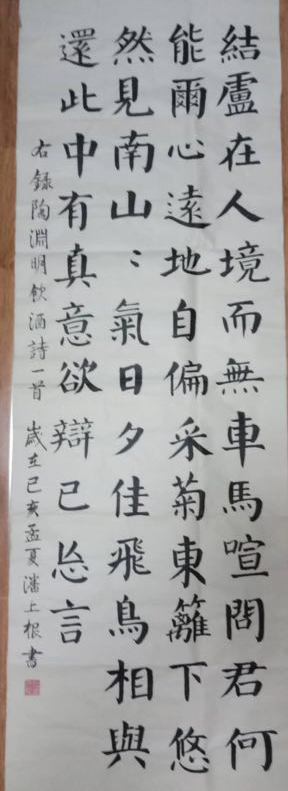 結盧在人境而無車馬喧問君何
能爾心遠地自偏采菊東籬下悠
然見南山〻氣日夕佳飛鳥相與
還此中有真意欲辯已忘言
右錄陶淵明飲酒詩一首 歲在己亥孟夏潘上根書